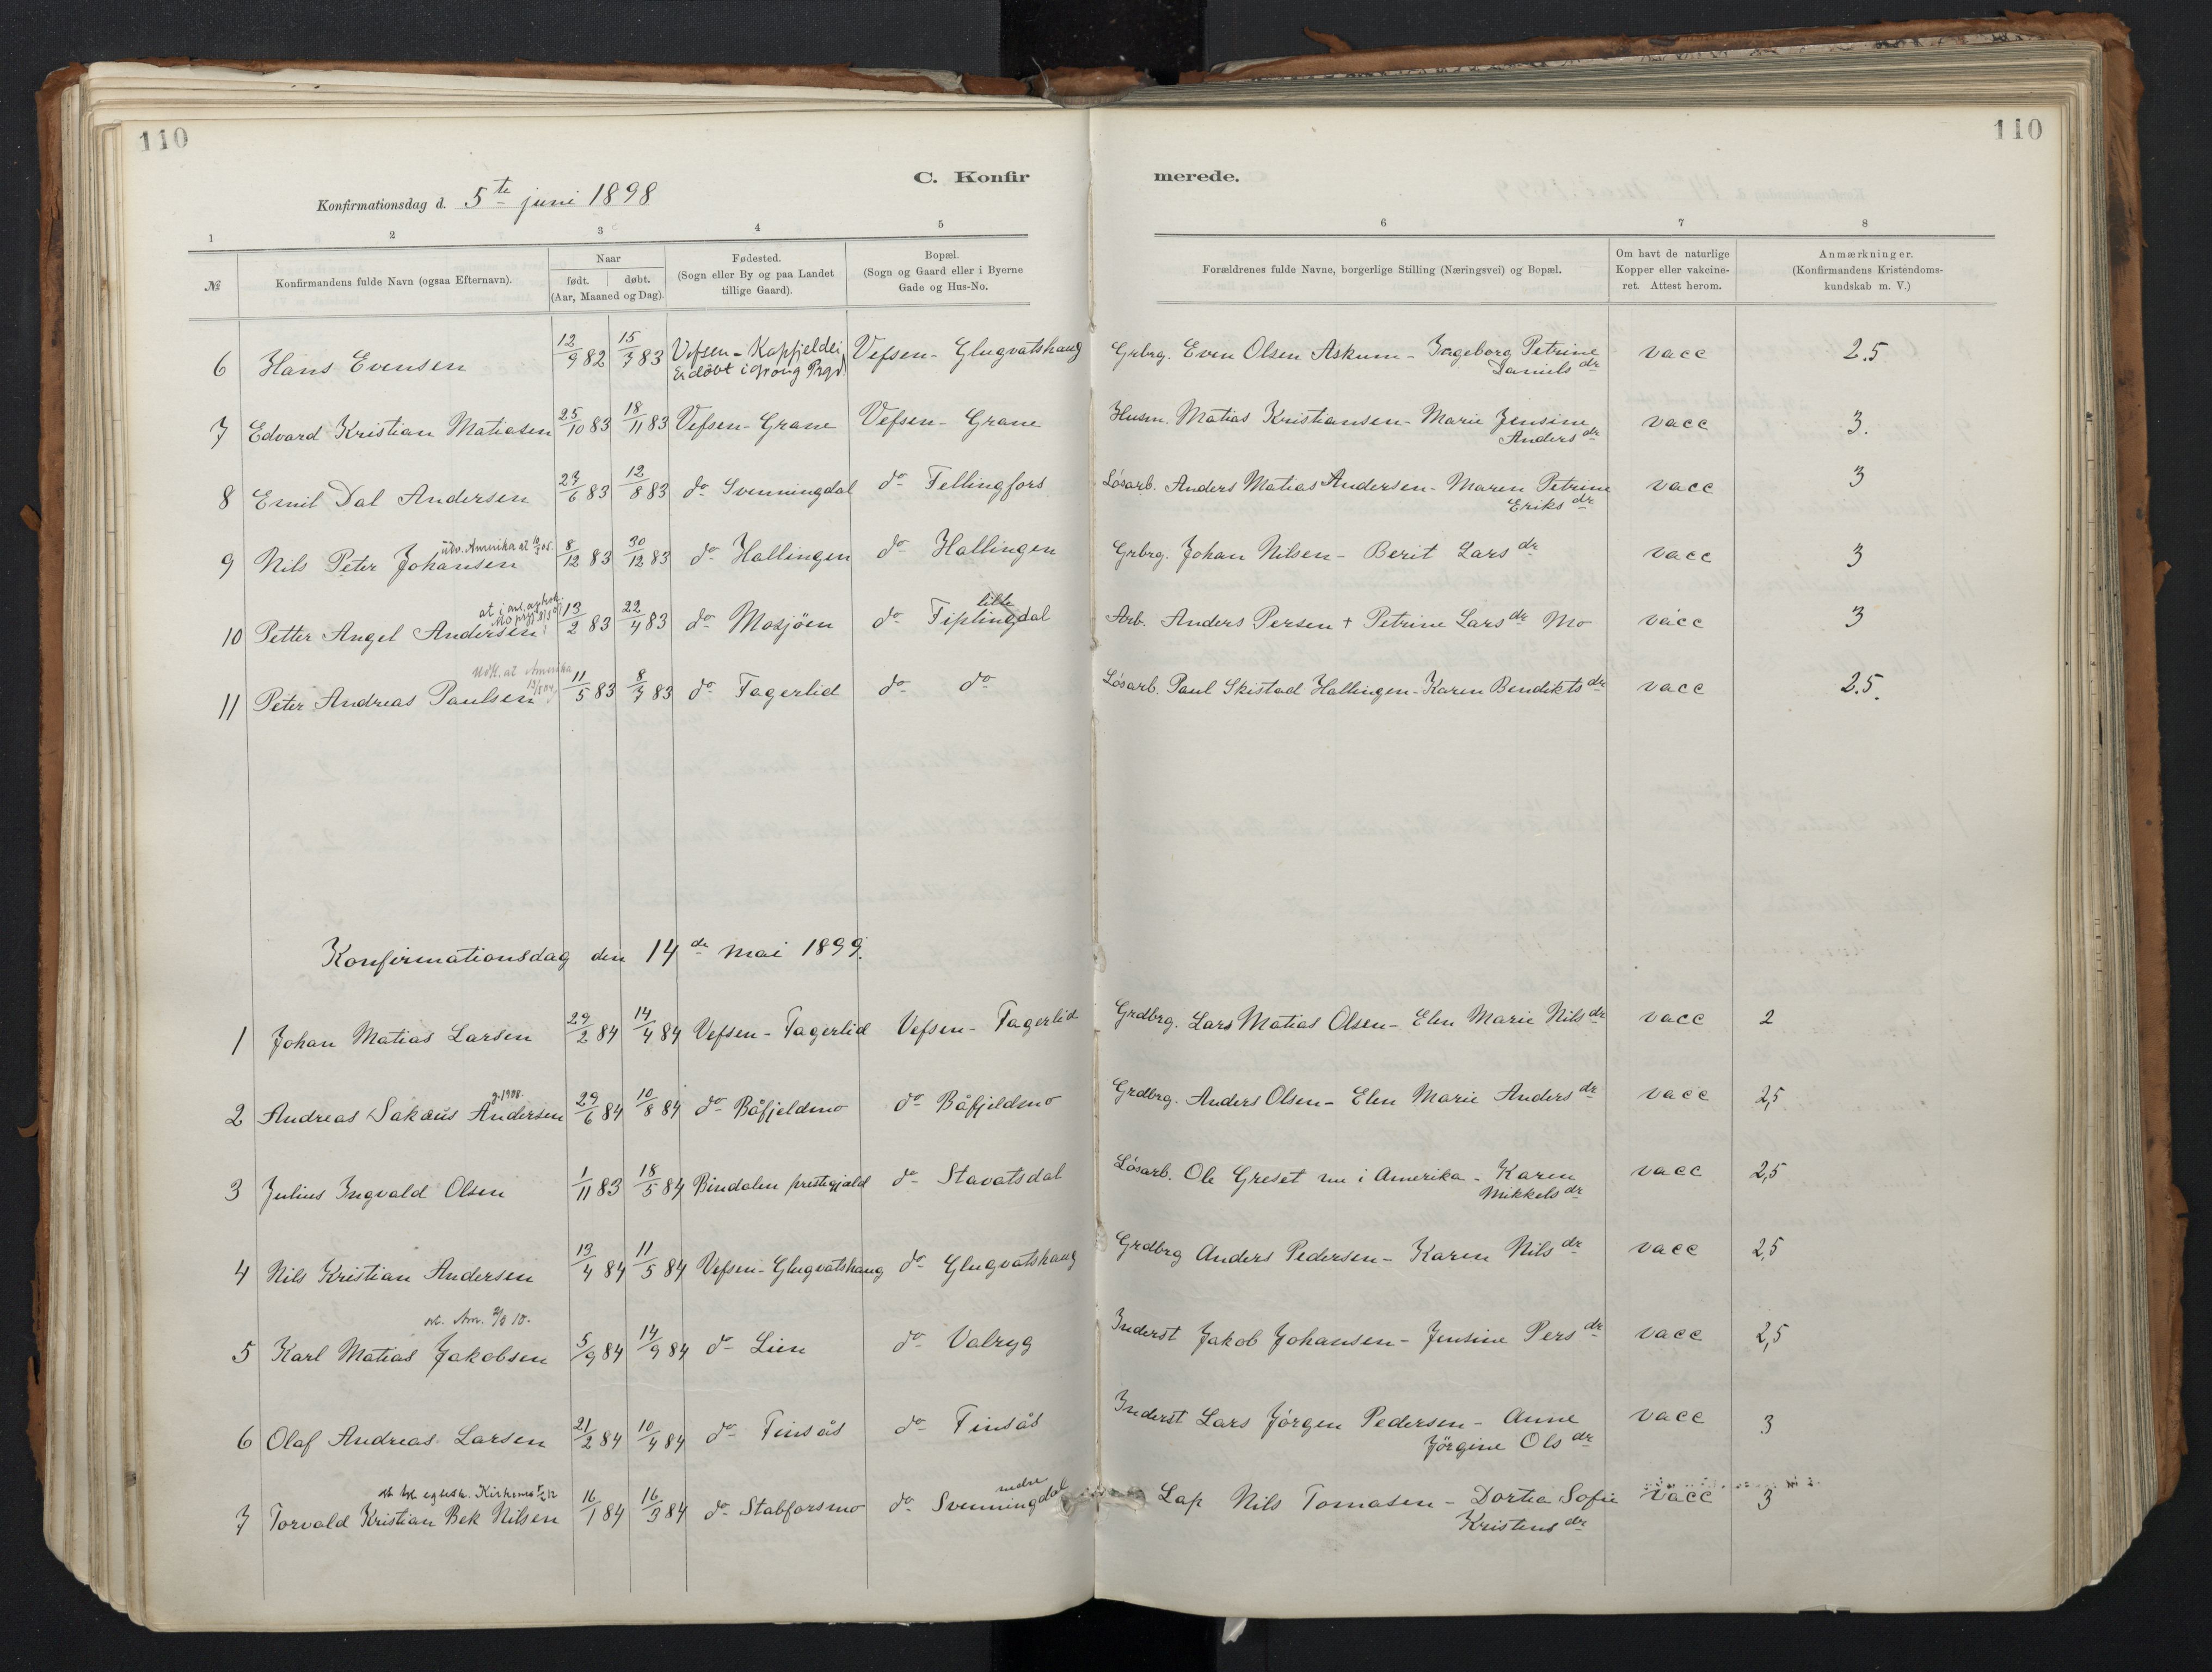 110
110
C. Konfir
merede.
Konfirmationsdag d. 5te juni 1898
1 2 3 4 5 6 7 8
№
Konfirmandens fulde Navn (ogsaa Efternavn).
Naar
født. døbt.
(Aar, Maaned og Dag).
Fødested.
(Sogn eller By og paa Landet
tillige Gaard).
Bopæl.
(Sogn og Gaard eller i Byerne
Gade og Hus-No.
Forældrenes fulde Navne, borgerlige Stilling (Næringsvei) og Bopæl.
Om havt de naturlige
Kopper eller vakcine-
ret. Attest herom.
Anmærkninger.
(Konfirmandens Kristendoms-
kundskab m. V.)
6 Hans Evensen 12/9 82 15/7 83 Vefsen - Kapfjeldli Vefsen - Glugvatshaug Grbrg. Even Olsen Askum - Ingeborg Petrine vacc 2.5
Er døbt i Grong Prgd Daniels dr
7 Edvard Kristian Matiasen 25/10 83 18/11 83 Vefsen - Grane Vefsen - Grane Husm. Matias Kristiansen - Marie Jensine vacc 3.
Anders dr
8 Emil Dal Andersen 27/6 83 12/8 83 do Svenningdal do Fellingfors Lósarb. Anders Matias Andersen - Maren Petrine vacc 3
Eriks dr
utv. Amerika at
9 Nils Peter Johansen 8/12 83 30/12 83 do Hallingen do Hallingen Grbrg. Johan Nilsen - Berit Lars dr vacc 3
at i anl.
lille
10 Petter Angel Andersen 13/2 83 22/4 83 do Mosjøen do Fiplingdal Arb. Anders Persen + Petrine Lars dr Mo vacc 3
Udfl. at Amerika
11 Peter Andreas Paulsen 11/5 83 8/7 83 do Fagerlid do do Lósarb. Paul Skistad Hallingen - Karen Bendikts dr vacc 2.5.
Konfirmationsdag den 14de mai 1899.
1 Johan Matias Larsen 29/2 84 14/4 84 Vefsen - Fagerlid Vefsen - Fagerlid Grdbrg. Lars Matias Olsen - Elen Marie Nils dr vacc 2
g. 1908.
2 Andreas Sakaus Andersen 29/6 84 10/8 84 do Båfjeldmo do Båfjeldmo Grdbrg. Anders Olsen - Elen Marie Anders dr vacc 2,5
3 Julius Ingvald Olsen 1/11 83 18/5 84 Bindalen prestegjæld do Stavatsdal Lósarb. Ole Greset nu i Amerika - Karen vacc 2,5
Mikkels dr
4 Nils Kristian Andersen 13/4 84 11/5 84 Vefsen - Glugvatshaug do Glugvatshaug Grdbrg Anders Pedersen - Karen Nils dr vacc 2,5
Am. 10.
5 Karl Matias Jakobsen 5/9 84 14/9 84 do Lien do Valryg Inderst Jakob Johansen - Jensine Pers dr vacc 2,5
6 Olaf Andreas Larsen 21/2 84 10/4 84 do Finsås do Finsås Inderst Lars Jørgen Pedersen - Anne vacc 3
Jörgine Ols dr
Kirkenes 12
nedre
7 Torvald Kristian Bek Nilsen 16/1 84 16/3 84 do Stabforsmo do Svenningdal Lap Nils Tomasen - Dortea Sofie vacc 3
Kristens dr